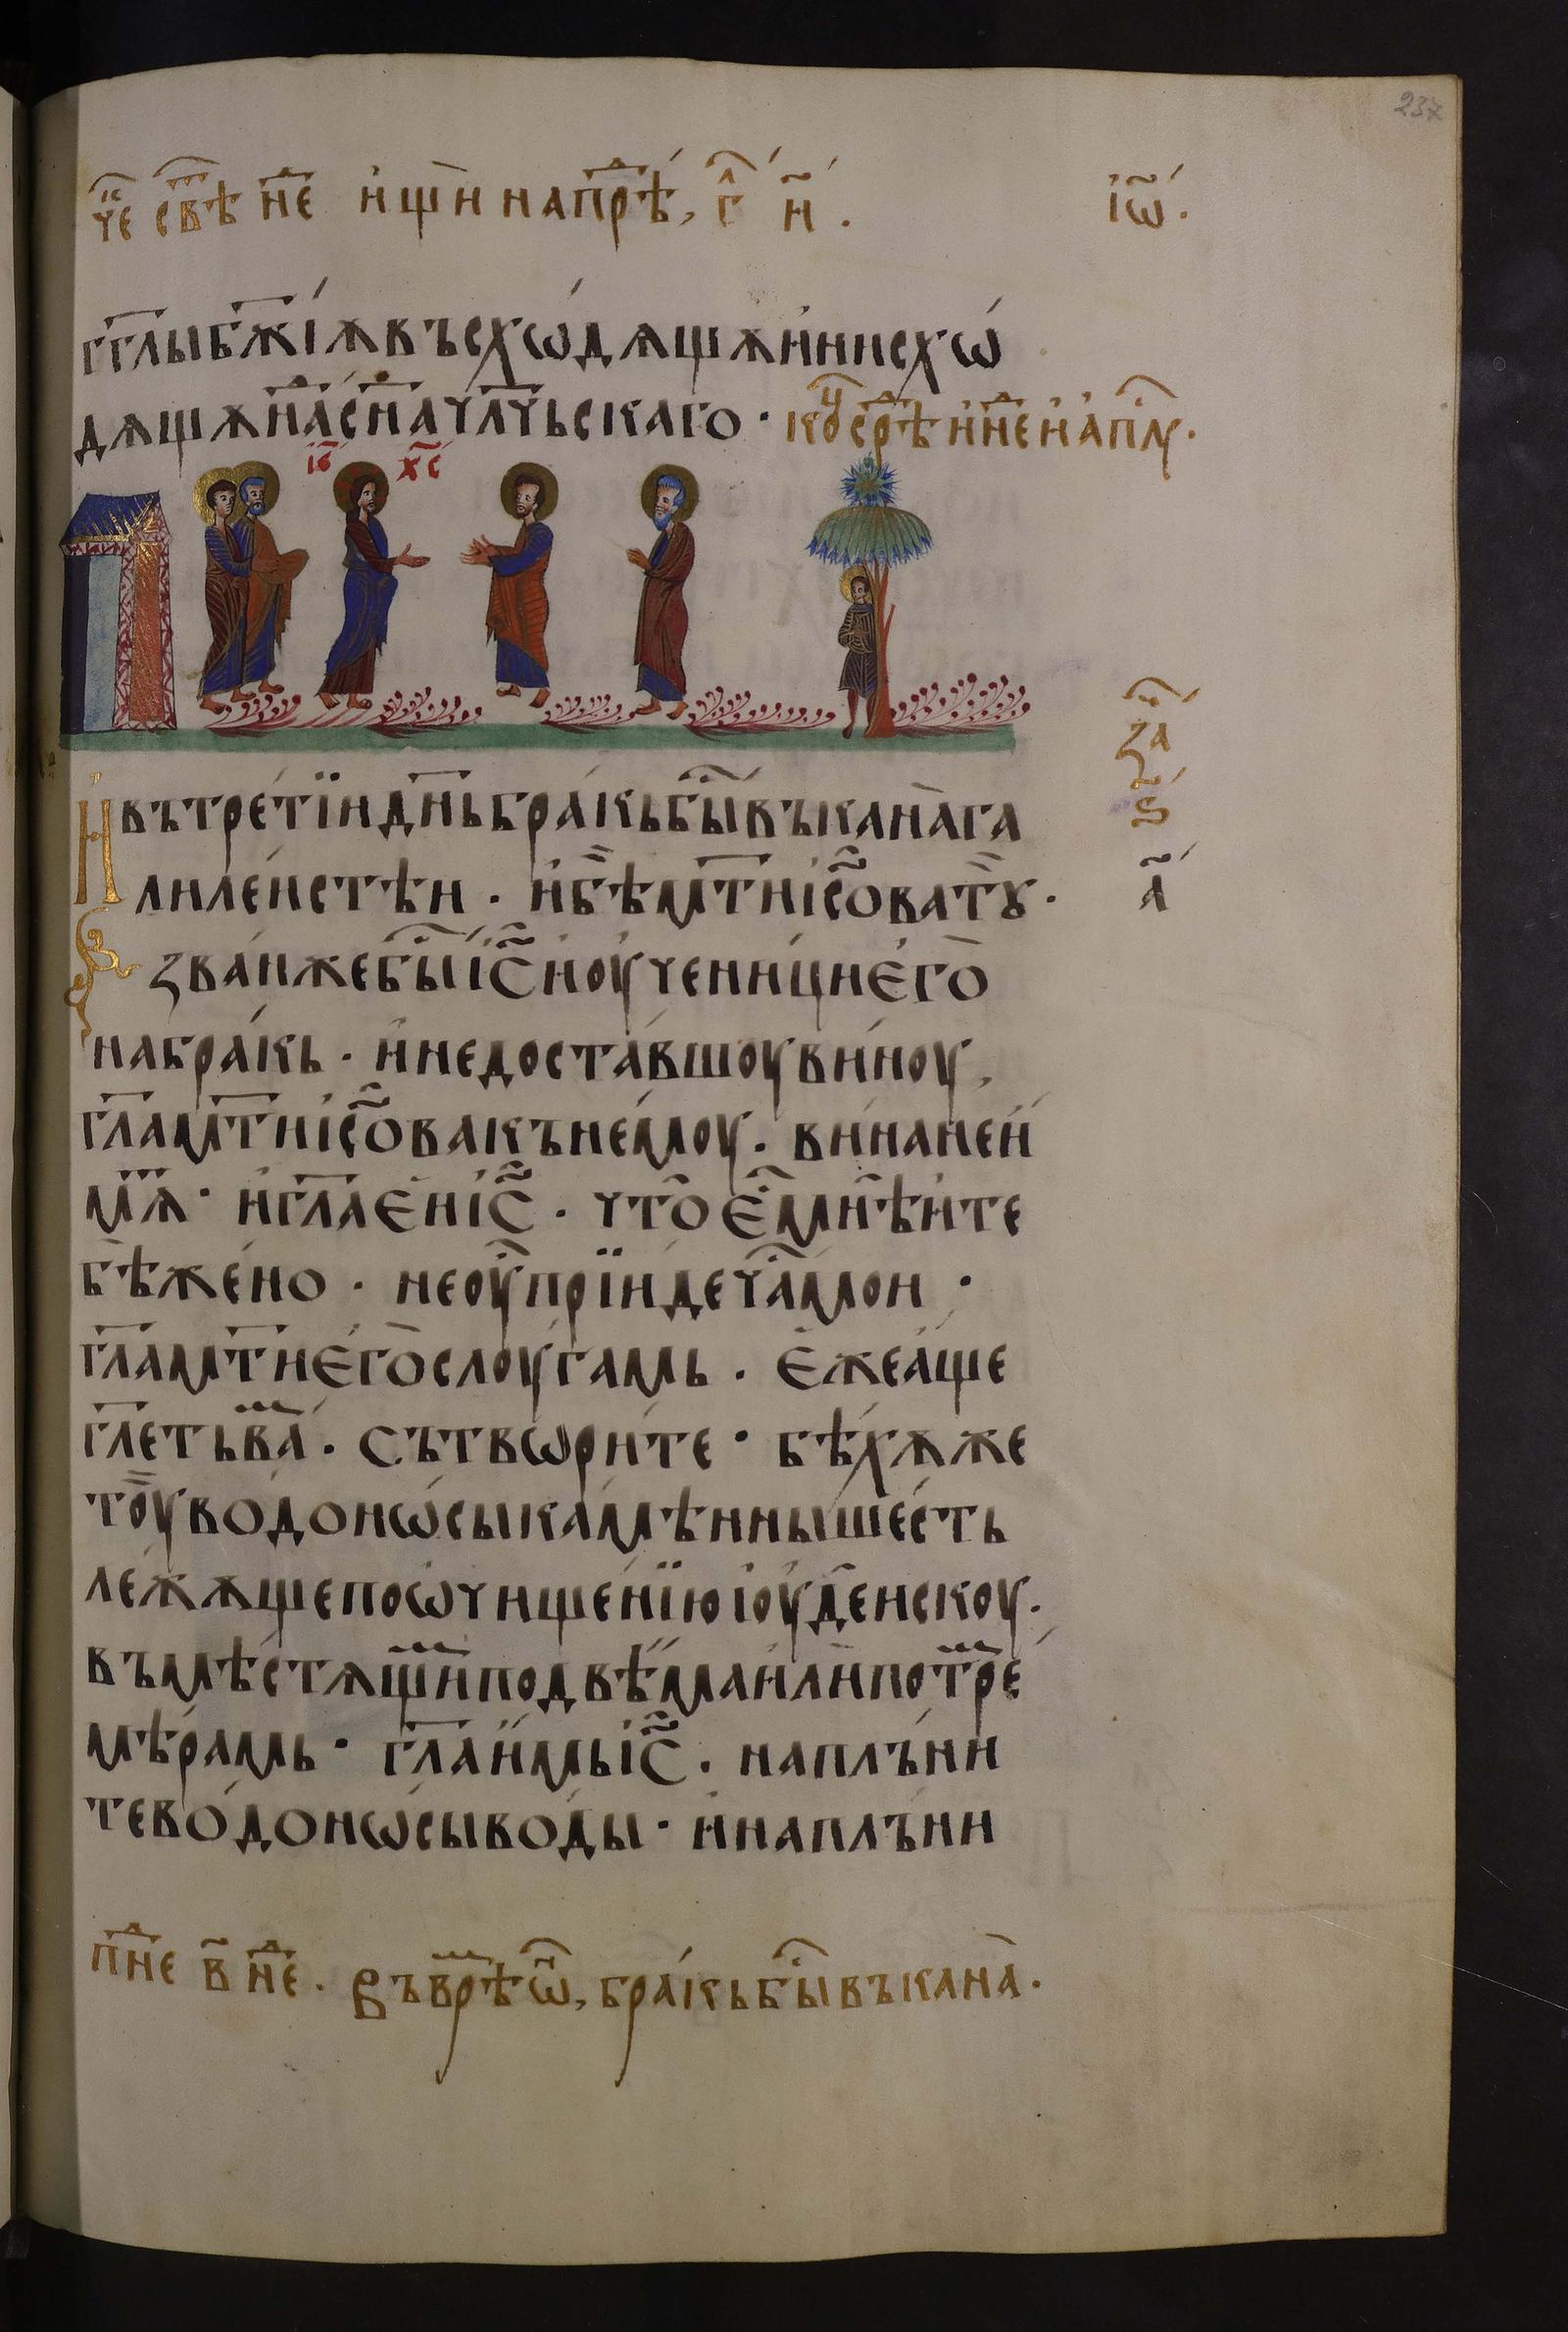 237
че свѣ не и ѱи на прѣ, г н.
іѡ.
гглы бжіѧ въсхѡдѧщѧ и нисхѡ
дѧщѧ на сна члчьскаго · кѡ срѣ и не и апл.
іс хс
за
ѕ
И въ третїи днь бракь бы въ кана га
лилеистѣи · и бѣ мти ісова тꙋ ·
а
зван же бы іс и оученици его
на бракь · и недоставшоу виноу,
гла мти ісова къ немоу · вина не и
мѧ · и гла еи іс · что е мнѣ и те
бѣ жено · не оу прїиде ча мои ·
гла мти его слоугамь · еже аще
глеть ва · сътвѡрите · бѣхѫ же
тоу водонѡсы камѣнны шесть
лежѫще по ѡчищенїю іоуденскоу ·
въмѣстѧщи по двѣма или по тре
мѣрамь · гла имь іс · наплъни
те водонѡсы воды · и наплъни
пне в не · въ врѣ ѡ, бракь бы въ кана ·